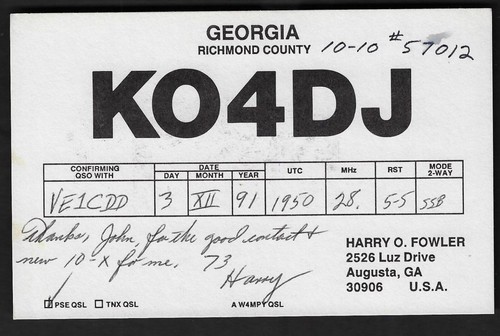 GEORGIA
RICHMOND COUNTY 10-10 #57012
KO4DJ
CONFIRMING QSO WITH DATE DAY MONTH YEAR UTC MHz RST MODE 2-WAY
VE1CDD 3 XII 91 1950 28. 5-5 SSB
Thanks, John, for the good contact &
new 10-X for me. 73
Harry
HARRY O. FOWLER
2526 Luz Drive
Augusta, GA
30906 U.S.A.
PSE QSL TNX QSL A W4MPY QSL